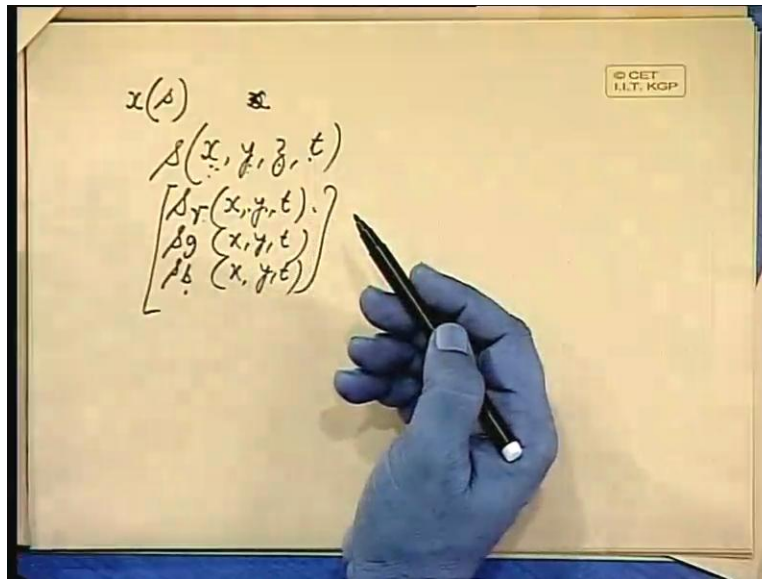 x(s)
© CET
I.I.T. KGP
s(x, y, z, t)
s_r(x, y, t).
s_g (x, y, t)
s_b (x, y, t)